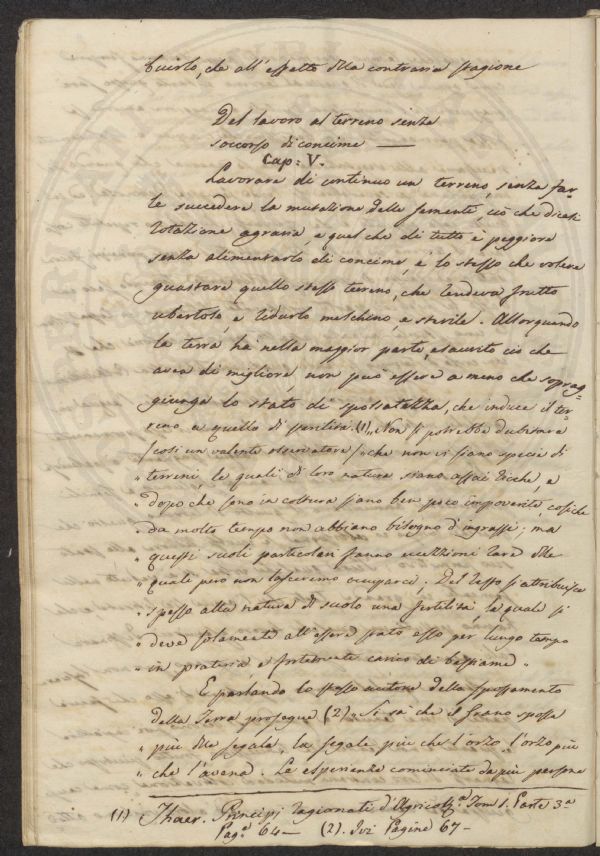 buirlo, che all'effetto della contraria stagione
Del lavoro al terreno senza
soccorso di concime —
Cap: V.
Lavorare di continuo un terreno senza far-
le succedere la mutazione delle sementi, ciò che dicesi
rotazione agraria, e quel che di tutto è peggiore
senza alimentarlo di concime, è lo stesso che volere
guastare quello stesso terreno, che rendeva frutto
ubertoso, e ridurlo meschino, e sterile. Allorquando
la terra ha nella maggior parte esaurito ciò che
avea di migliore, non può essere a meno che soprag-
giunga lo stato di spossatezza, che induce il ter-
reno a quello di sterilità. (1) „ Non si potrebbe dubitare
(così un valente osservatore) che non vi siano specie di
„ terreni, le quali di loro natura siano assai ricche, e
„ dopo che sono in coltura siano ben poco impoverite, cosiche
„ da molto tempo non abbiano bisogno d'ingrassi; ma
„ questi suoli particolari fanno eccezzioni rare delle
„ quali però non lasceremo occuparci. Del resto si attribuisce
„ spesso alla natura di suolo una fertilità, la quale si
„ deve solamente all'essere stato esso per lungo tempo
„ in prateria, e fortemente carico di bestiame „
E parlando lo stesso autore dello spossamento
della Terra prosegue (2) „ Si sà che il grano spossa
„ più della segala, la segale più che l'orzo l'orzo più
„ che l'avena. Le esperienze cominciate da più persone
(1) Thaer. Principj ragionati d'Agricolt.ª Tom 1. Parte 3.ª
Pag.ª 64 — (2). Ivi Pagine 67 —